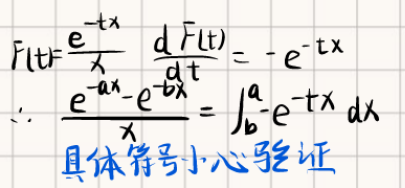 F(t)=\frac{e^{-tx}}{x} \frac{dF(t)}{dt}=-e^{-tx}
∴ \frac{e^{-ax}-e^{-bx}}{x}=\int_{b}^{a}-e^{-tx} dx
具体符号小心验证